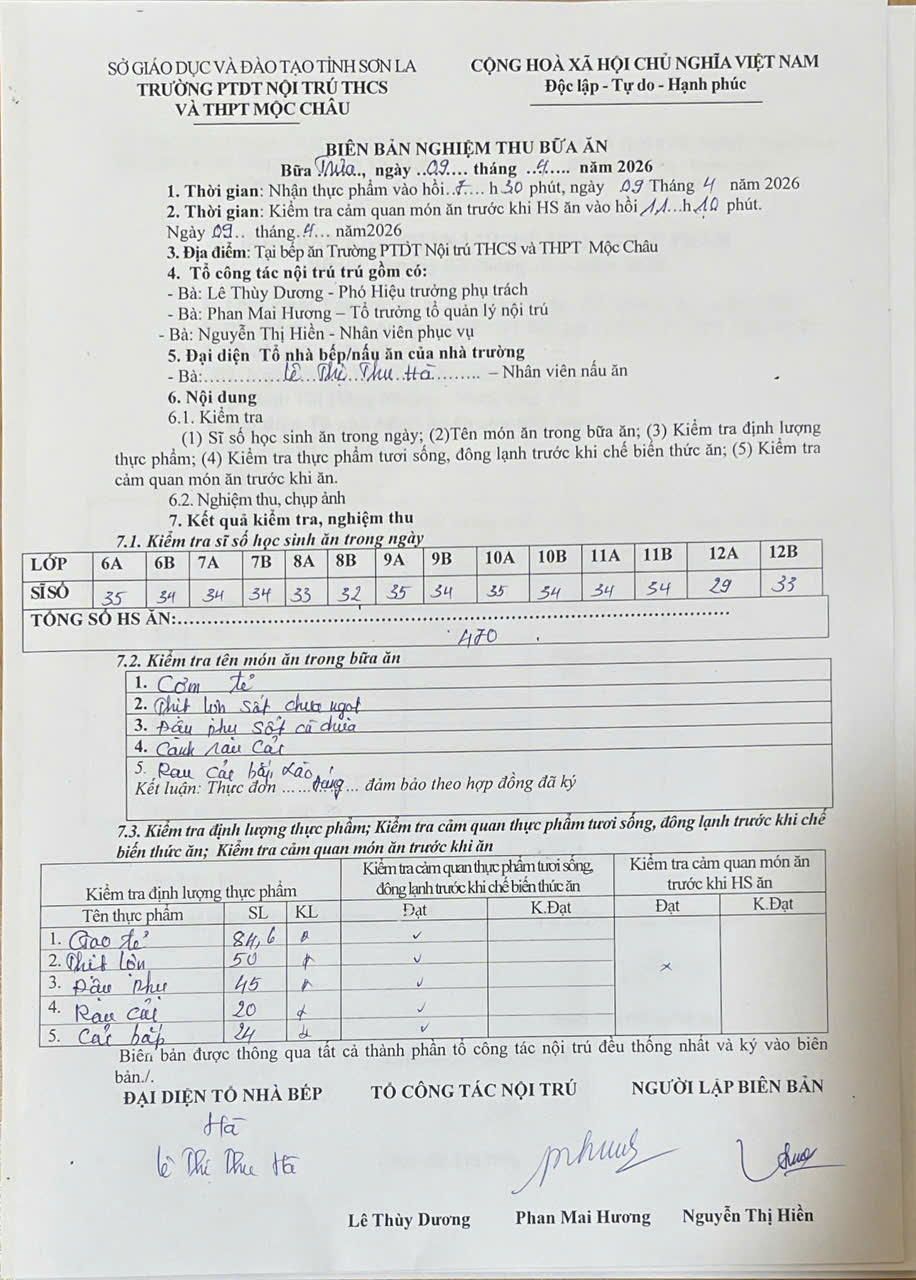 SỞ GIÁO DỤC VÀ ĐÀO TẠO TỈNH SƠN LA
TRƯỜNG PTDT NỘI TRÚ THCS
VÀ THPT MỘC CHÂU
CỘNG HOÀ XÃ HỘI CHỦ NGHĨA VIỆT NAM
Độc lập - Tự do - Hạnh phúc
BIÊN BẢN NGHIỆM THU BỮA ĂN
Bữa Trưa.., ngày ..09.... tháng ..4..... năm 2026
1. Thời gian: Nhận thực phẩm vào hồi..7.... h 30 phút, ngày 09 Tháng 4 năm 2026
2. Thời gian: Kiểm tra cảm quan món ăn trước khi HS ăn vào hồi 11...h10 phút.
Ngày 09.. tháng.4... năm2026
3. Địa điểm: Tại bếp ăn Trường PTDT Nội trú THCS và THPT Mộc Châu
4. Tổ công tác nội trú trú gồm có:
- Bà: Lê Thùy Dương - Phó Hiệu trưởng phụ trách
- Bà: Phan Mai Hương – Tổ trưởng tổ quản lý nội trú
- Bà: Nguyễn Thị Hiền - Nhân viên phục vụ
5. Đại diện Tổ nhà bếp/nấu ăn của nhà trường
- Bà:.............Lê Thị Thu Hà......... – Nhân viên nấu ăn
6. Nội dung
6.1. Kiểm tra
(1) Sĩ số học sinh ăn trong ngày; (2)Tên món ăn trong bữa ăn; (3) Kiểm tra định lượng
thực phẩm; (4) Kiểm tra thực phẩm tươi sống, đông lạnh trước khi chế biến thức ăn; (5) Kiểm tra
cảm quan món ăn trước khi ăn.
6.2. Nghiệm thu, chụp ảnh
7. Kết quả kiểm tra, nghiệm thu
7.1. Kiểm tra sĩ số học sinh ăn trong ngày
LỚP 6A 6B 7A 7B 8A 8B 9A 9B 10A 10B 11A 11B 12A 12B
SĨ SỐ 35 34 34 34 33 32 35 34 35 34 34 34 29 33
TỔNG SỐ HS ĂN:..........
470
7.2. Kiểm tra tên món ăn trong bữa ăn
1. Cơm tẻ
2. Thịt lợn sốt chua ngọt
3. Đậu phụ sốt cà chua
4. Canh rau cải
5. Rau cải bắp xào
Kết luận: Thực đơn ......đúng... đảm bảo theo hợp đồng đã ký
7.3. Kiểm tra định lượng thực phẩm; Kiểm tra cảm quan thực phẩm tươi sống, đông lạnh trước khi chế
biến thức ăn; Kiểm tra cảm quan món ăn trước khi ăn
Kiểm tra định lượng thực phẩm
Kiểm tra cảm quan thực phẩm tươi sống,
đông lạnh trước khi chế biến thức ăn
Kiểm tra cảm quan món ăn
trước khi HS ăn
Tên thực phẩm SL KL Đạt K.Đạt Đạt K.Đạt
1. Gạo tẻ 84,6 ✓
2. Thịt lợn 50 ✓ x
3. Đậu phụ 45 ✓
4. Rau cải 20 ✓
5. Cải bắp 24 ✓
Biên bản được thông qua tất cả thành phần tổ công tác nội trú đều thống nhất và ký vào biên
bản./.
ĐẠI DIỆN TỔ NHÀ BẾP TỔ CÔNG TÁC NỘI TRÚ NGƯỜI LẬP BIÊN BẢN
Hà
Lê Thị Thu Hà
Lê Thùy Dương Phan Mai Hương Nguyễn Thị Hiền